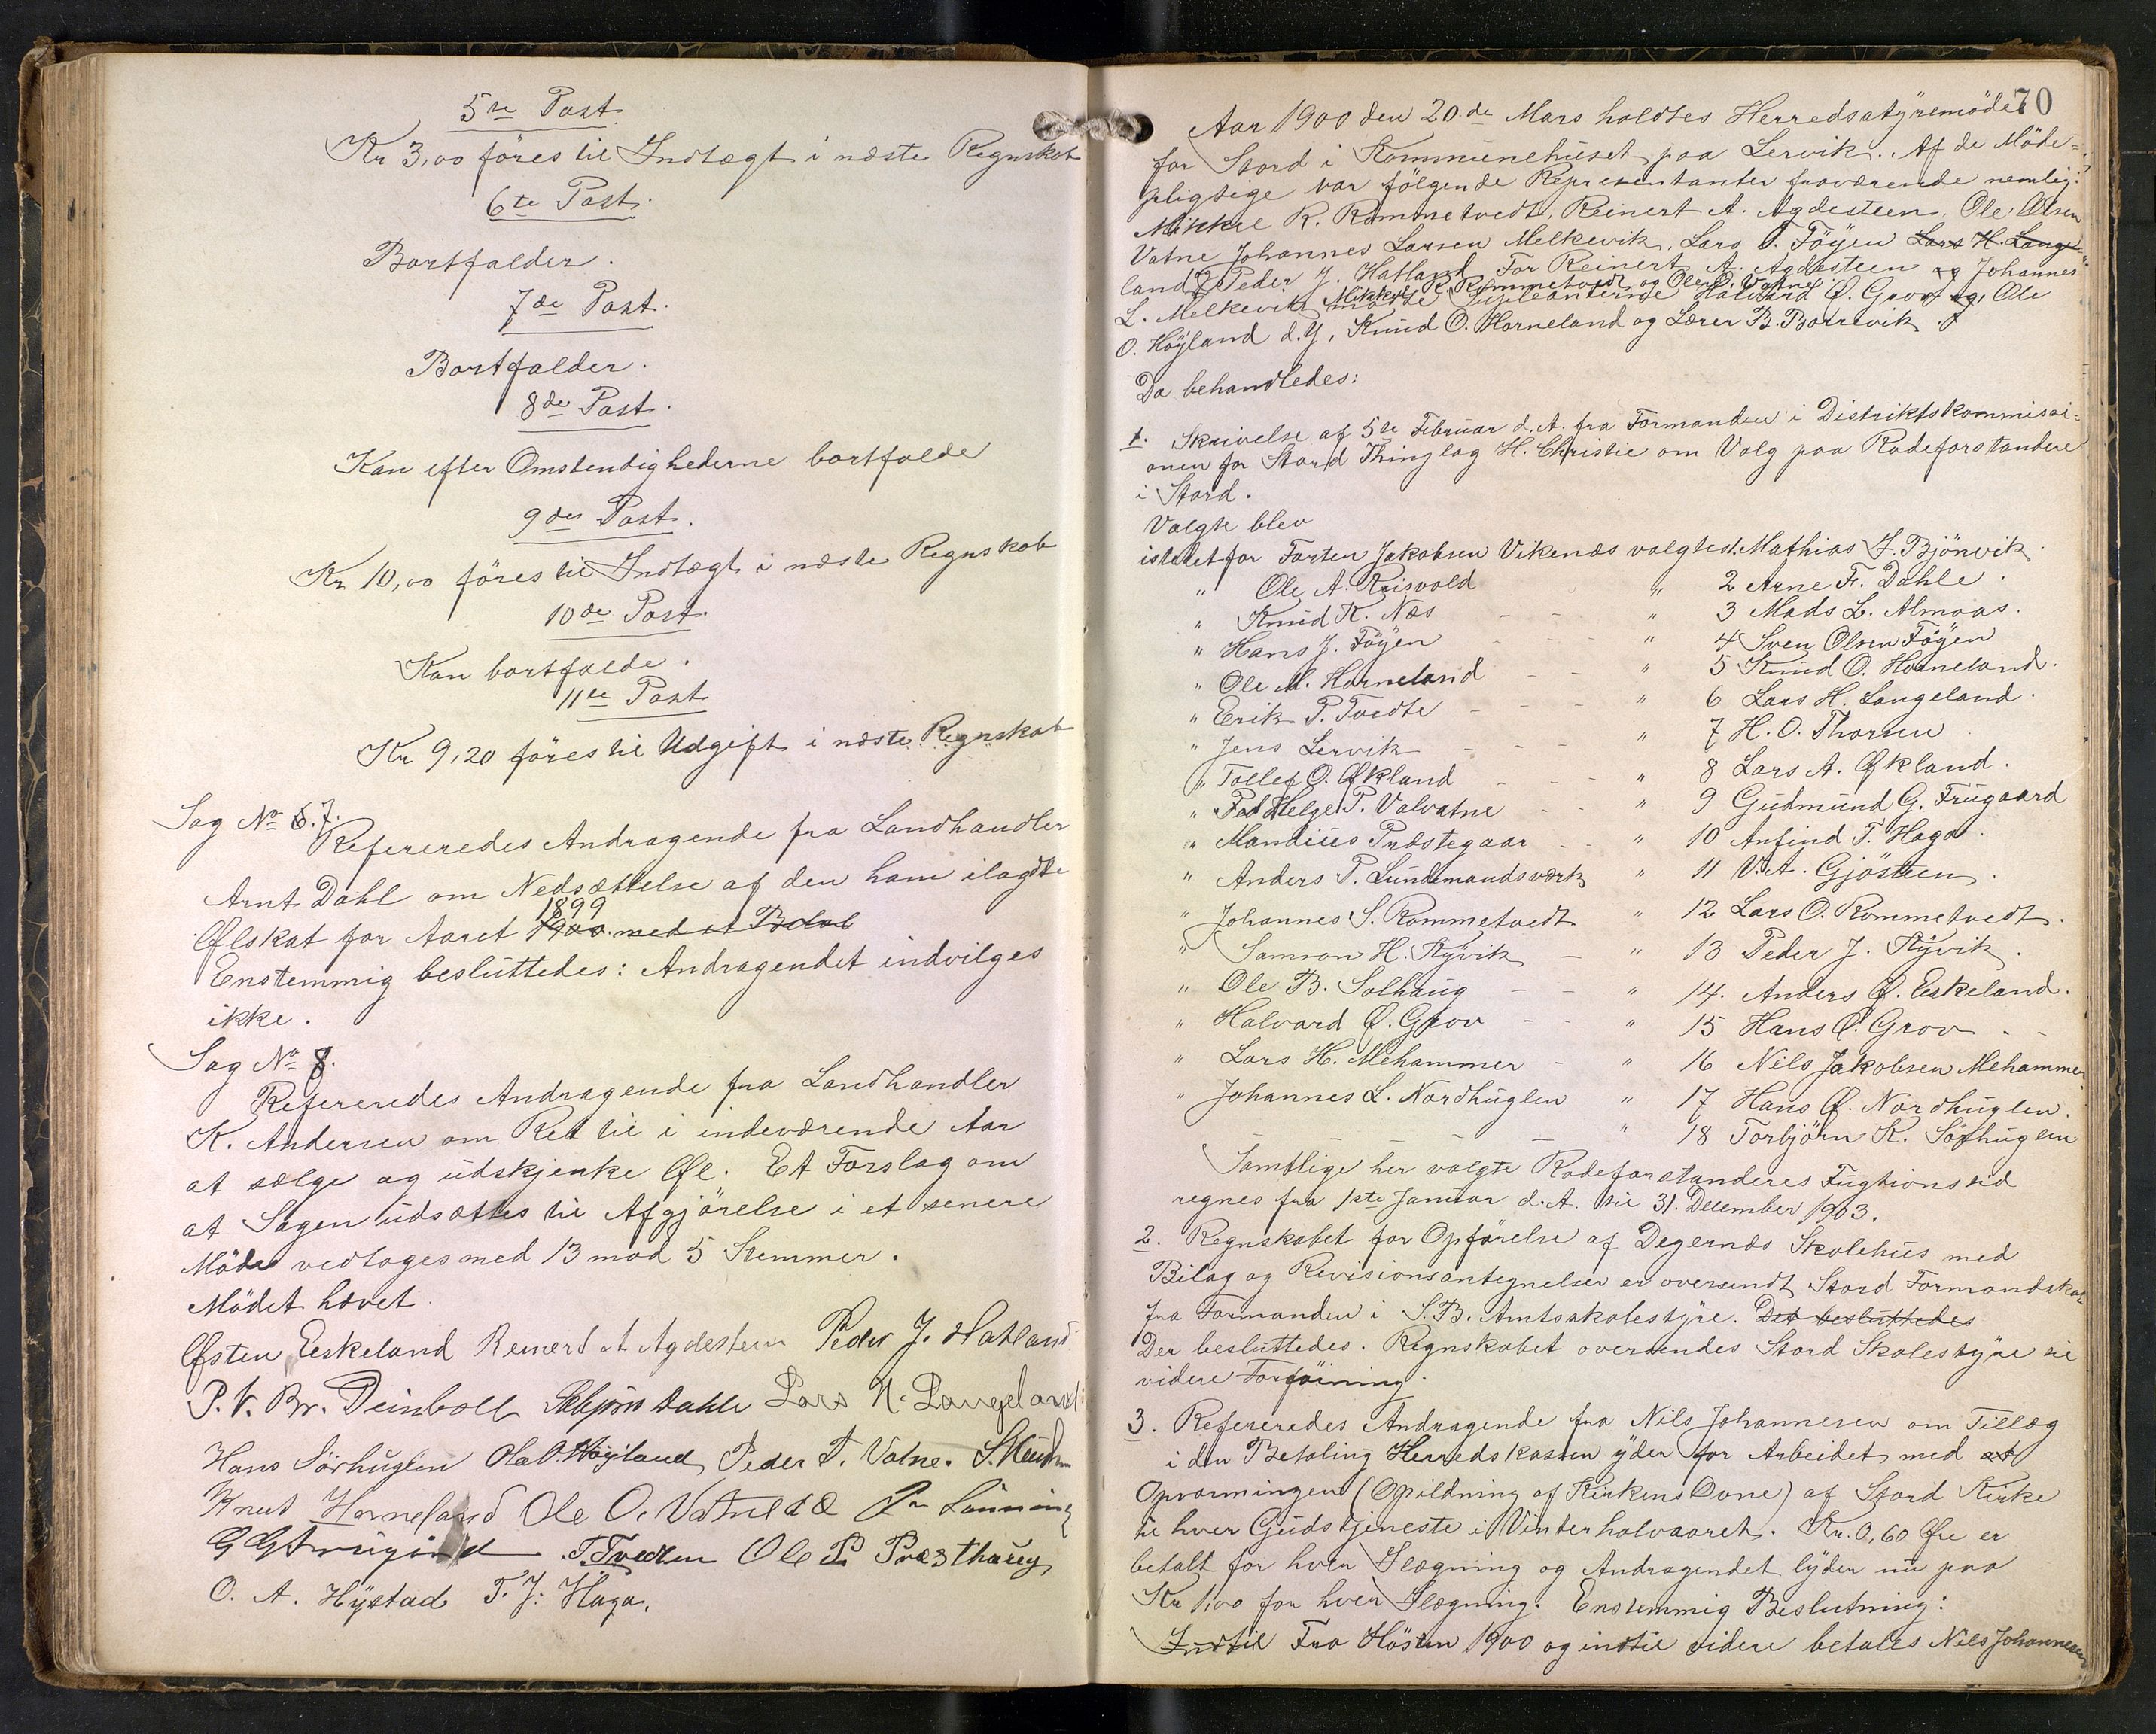 5te Post
Kr 3,00 föres til Indtægt i næste Regnskab
6te Post.
Bortfalder.
7de Post.
Bortfalder.
8de Post.
Kan efter Omstendighederne bortfalde
9de Post.
Kr 10,00 föres til Indtægt i næste Regnskab
10de Post.
Kan bortfalde.
11te Post
Kr 9,20 föres til Udgift i næste Regnskab
Sag No 6.7.
Refereredes Andragende fra Landhandler
Arnt Dahl om Nedsættelse af den ham ilagdte
1899
Ølskat for Aaret 1900 med et Beløb
Enstemmig besluttedes: Andragendet indvilges
ikke.
Sag No 8.
Refereredes Andragende fra Landhandler
K. Andersen om Ret til i indeværende Aar
at sælge og udskjenke Øl. Et Forslag om
at Sagen udsættes til Afgjörelse i et senere
Möde vedtoges med 13 mod 5 Stemmer.
Mödet hævet.
Østen Eskeland Reinert A Agdestein Peder J. Hatland
P. V. Br. Deinboll Asbjörn Dahle Lars H. Langeland
Hans Sörhuglen Ola O. Höyland Peder T. Vatne.
Knut Horneland Ole O. Vatne
T. Tvedten Ole P. Præsthaug
O. A. Hystad T. J. Haga.
70
Aar 1900 den 20.de Mars holdtes Herredsstyremöde
for Stord i Kommunehuset paa Lervik. Af de Möde=
pligtige var fölgende Representanter fraværende nemlig:
Mikkel R. Rommetvedt, Reinert A. Agdesteen, Ole Olsen
Vatne Johannes Larsen Melkevik, Lars T. Föyen Lars H. Lange=
land & Peder J. Hatland For Reinert A. Agdesteen og Johannes
Mikkel R. Rommetvedt og Ole O. Vatne
L. Melkevik mödte Supleanterne Halvard Ø. Grov og, Ole
O. Höyland d.y, Knud O. Horneland og Lærer B. Borrevik.
Da behandledes:
1. Skrivelse af 5te Februar d.A. fra Formanden i Distriktskommissi=
onen for Stord Thinglag H. Christie om Valg paa Rodeforstandere
i Stord.
Valgte blev
istedet for Torten Jakobsen Vikenæs valgtes 1. Mathias J. Björvik.
" Ole A. Risvold " 2 Arne Fr. Dahle.
" Knud K. Næs - - " 3 Mads L. Almaas.
" Hans J. Föyen - - - " 4 Sven Olsen Föyen
" Ole M. Horneland - - " 5 Knud O. Horneland.
" Erik P. Tvedte - - - " 6 Lars H. Langeland.
" Jens Lervik - - - " 7 H. O. Thorsen
" Tollef O. Økland - - - " 8 Lars A. Økland.
" Ped Helge P. Valvatne - - " 9 Gudmund G. Frugaard
" Mandius Præstegaar - - " 10 Anfind T. Haga.
" Anders P. Lundemandsværk " 11 V. A. Gjösteen.
" Johannes S. Rommetvedt " 12 Lars O. Rommetvedt.
" Samson H. Hyvik - " 13 Peder J. Hyvik.
" Ole B. Solhaug - - " 14. Anders Ø. Eskeland.
" Halvard Ø. Grov - - " 15 Hans Ø. Grov - -
" Lars H. Mehammer - " 16 Nils Jakobsen Mehammer
" Johannes L. Nordhuglen " 17 Hans Ø. Nordhuglen.
" 18 Torbjörn K. Sörhuglen
Samtlige her valgte Rodeforstanderes Fugtionstid
regnes fra 1ste Januar d.A. til 31. December 1903.
2. Regnskabet for Opförelse af Degernæs Skolehus med
Bilag og Revisionsantegnelser er oversendt Stord Formandskab
fra Formanden i S.B. Amtsskolestyre. Det besluttedes
Der besluttedes. Regnskabet oversendes Stord Skolestyre til
videre Forföining.
3. Refereredes Andragende fra Nils Johannesen om Tillæg
i den Betaling Herredskassen yder for Arbeidet med at
Opvarmingen (Opildning af Kirkens Ovne) af Stord Kirke
til hver Gudstjeneste i Vinterhalvaaret. Kr. 0,60 Øre er
betalt for hver Ilægning og Andragendet lyder nu paa
Kr 1,00 for hver Ilægning. Enstemmig Beslutning:
Indtil Fra Hösten 1900 og indtil videre betales Nils Johannesen